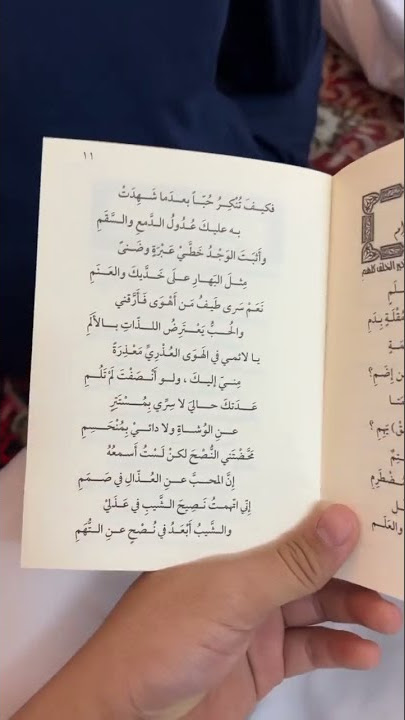 ١١
فكيـفَ تُنْكِـرُ حُبّـاً بعـدَما شَـهِـدَتْ
بـه عليـكَ عُدُولُ الـدَّمعِ والسَّـقَمِ
وأَثبَتَ الوَجْدُ خَطَّيْ عَبْرَةٍ وضَنىً
مِثلَ البَهَارِ علَى خَدَّيكَ والعَـنَمِ
نَعَمْ سَرَى طَيْفُ مَن أَهْوَى فأَرَّقَني
والحُبُّ يَعْتَرِضُ اللـذاتِ بـالأَلَمِ
يا لائمي في الهَوَى العُذْرِيِّ مَعْذِرَةً
مِنِّي إليكَ ، ولو أَنْصَفْتَ لَمْ تَلُمِ
عَدَتْكَ حـاليَ لا سِـرِّي بِمُسْـتَتِرٍ
عن الوُشـاةِ ولا دائـي بِمُنْحَسِـمِ
مَحَّضْتَني النُّصْحَ لكنْ لَسْتُ أَسمعُهُ
إنَّ المحبَّ عن العُذَّالِ في صَمَـمِ
إنِّي اتَّهمتُ نَصِيحَ الشَّيبِ في عَذَلي
والشَّيبُ أَبْعَدُ في نُصْحٍ عنِ التُّهَمِ
لَمِ
مُقْلَةٍ بِدَمِ
مَةٍ
ن إضَمِ؟
تَا
قْ) يَهِمِ ؟
طَرِمِ
والعَلَمِ